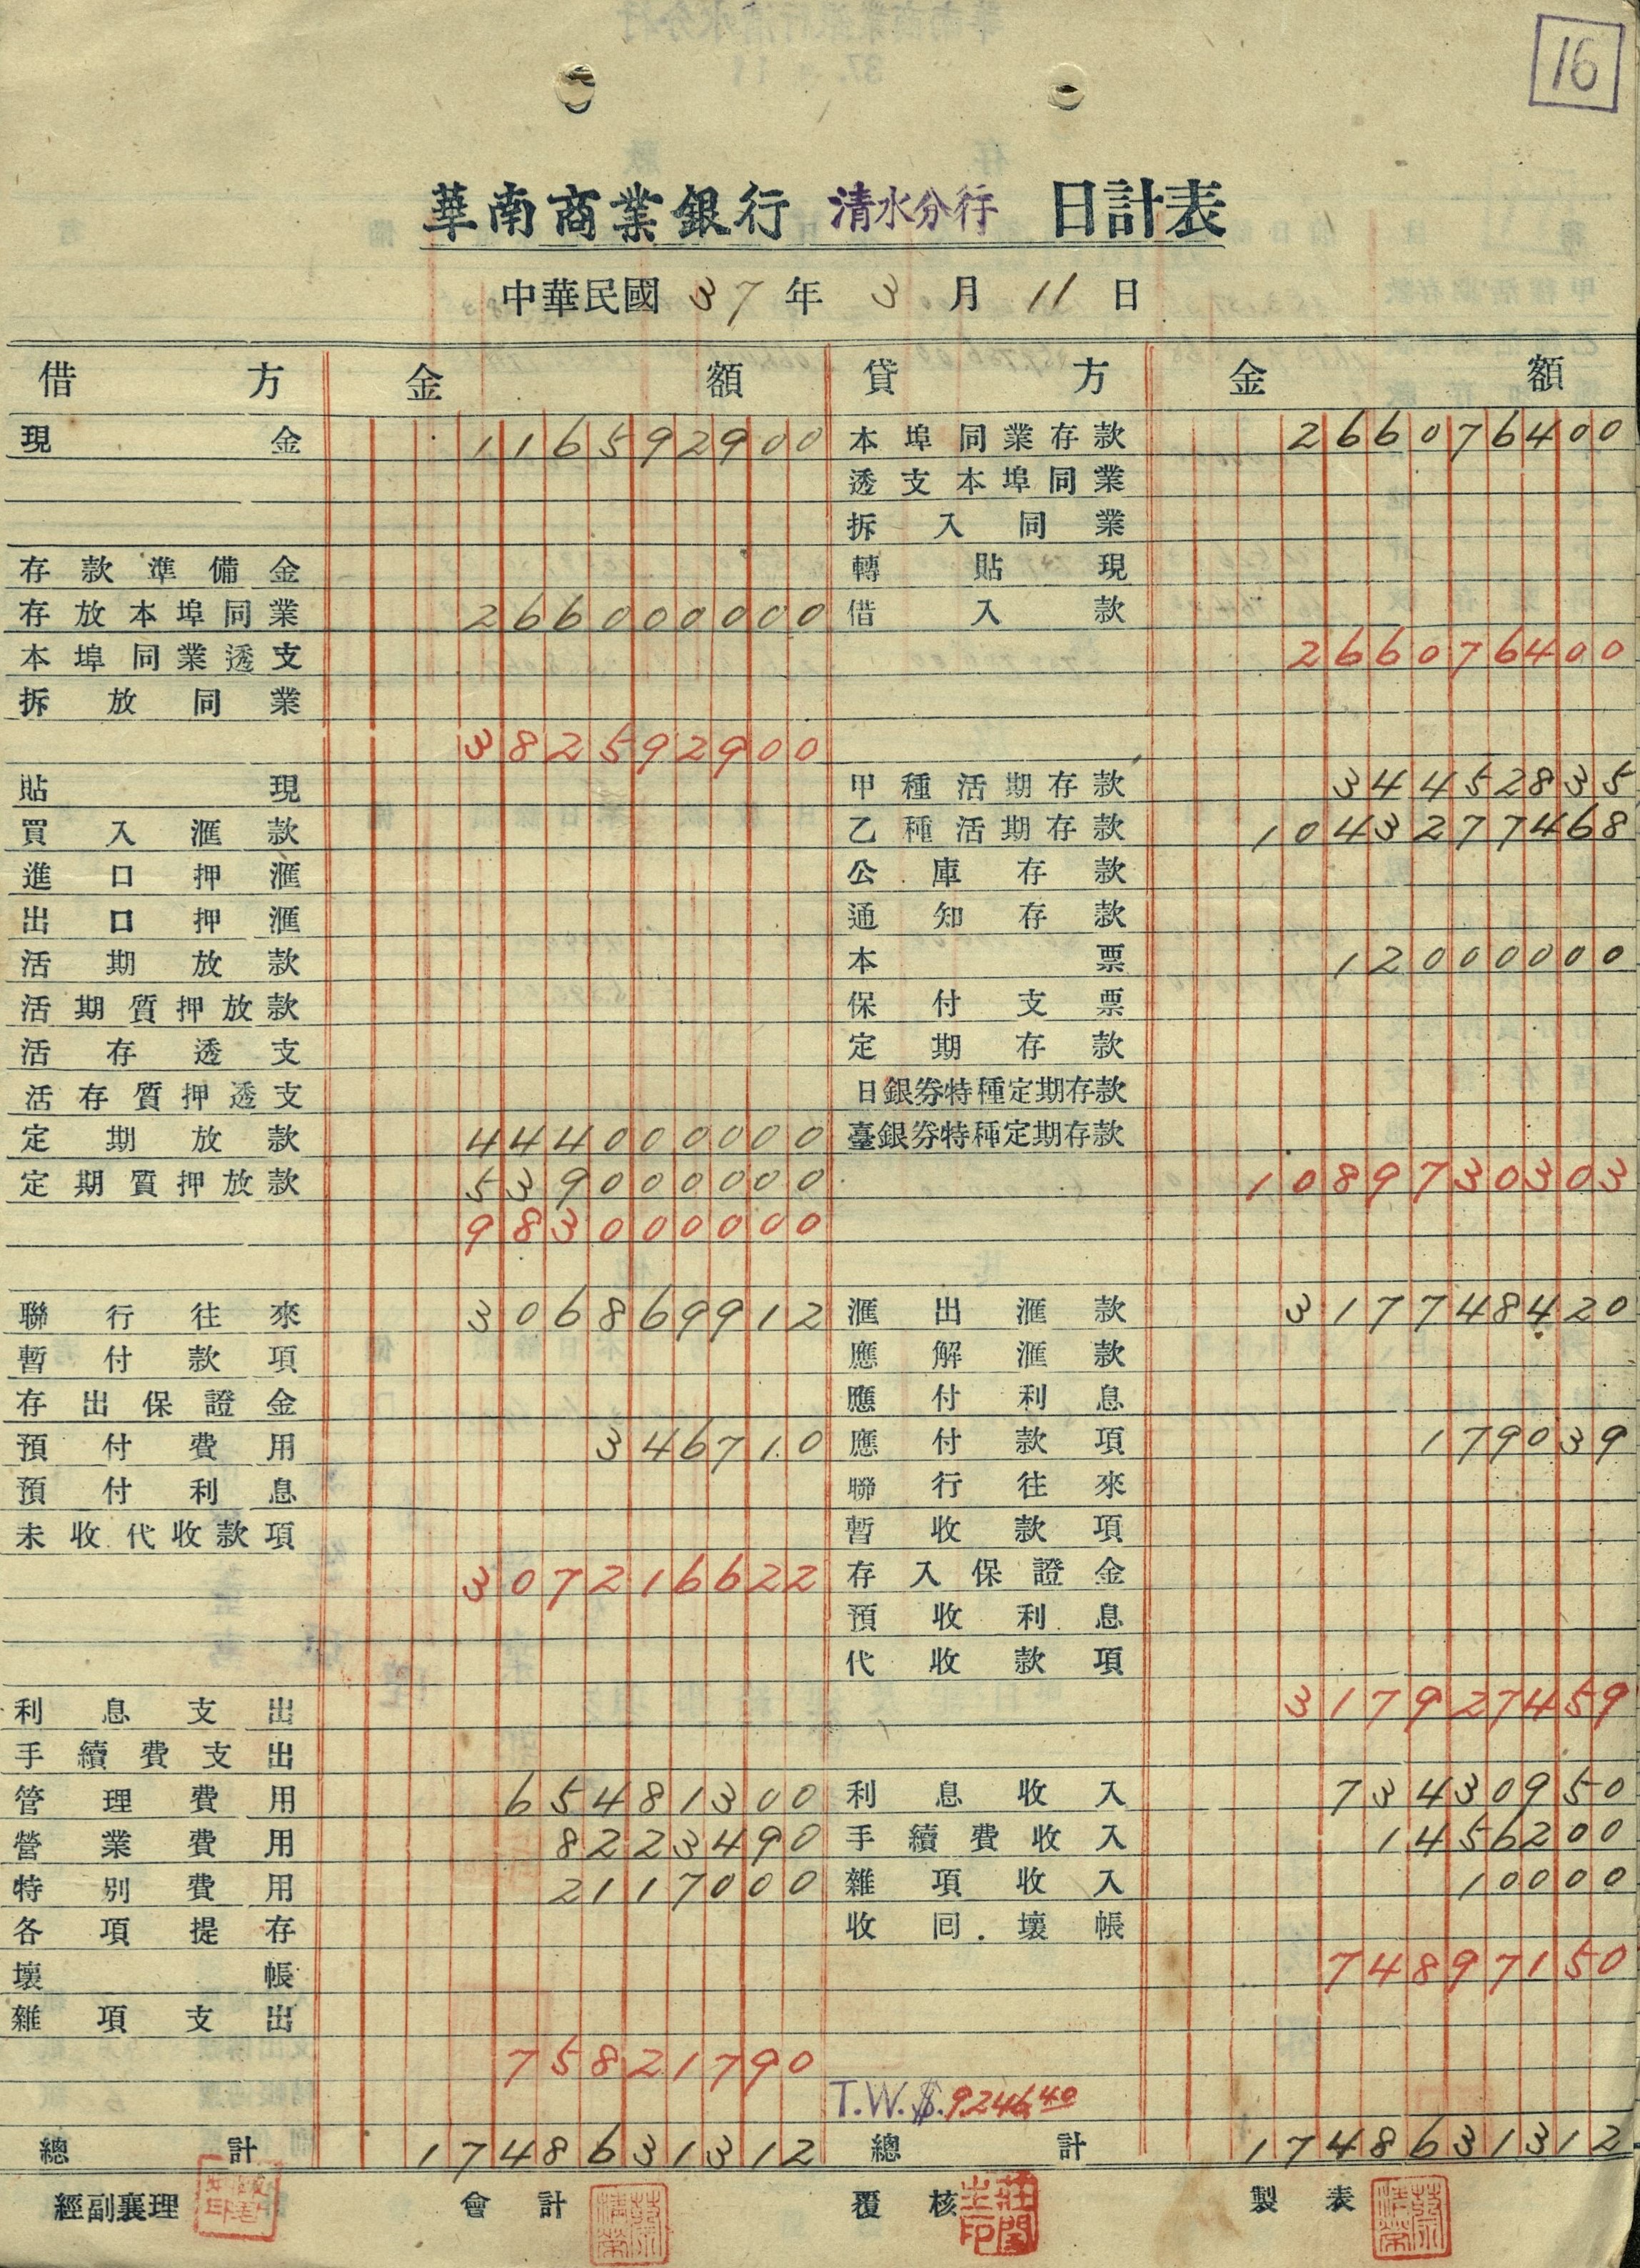 16
華南商業銀行 清水分行 日計表
中華民國 37 年 3 月 11 日
借方 金額 貸方 金額
現金 116592900 本埠同業存款 266076400
透支本埠同業
拆入同業
存款準備金 轉貼現
存放本埠同業 266000000 借入款
本埠同業透支 266076400
拆放同業
382592900
貼現 甲種活期存款 34452835
買入滙款 乙種活期存款 1043277468
進口押滙 公庫存款
出口押滙 通知存款
活期放款 本票 12000000
活期質押放款 保付支票
活存透支 定期存款
活存質押透支 日銀券特種定期存款
定期放款 444000000 臺銀券特種定期存款
定期質押放款 539000000 1089730303
983000000
聯行往來 306869912 滙出滙款 317748420
暫付款項 應解滙款
存出保證金 應付利息
預付費用 346710 應付款項 179039
預付利息 聯行往來
未收代收款項 暫收款項
307216622 存入保證金
預收利息
代收款項
利息支出 317927459
手續費支出
管理費用 65481300 利息收入 73430950
營業費用 8223490 手續費收入 1456200
特別費用 2117000 雜項收入 10000
各項提存 收回壞帳
壞帳 74897150
雜項支出
75821790
T.W.$.9246.40
總計 1748631312 總計 1748631312
經副襄理 會計 覆核 製表